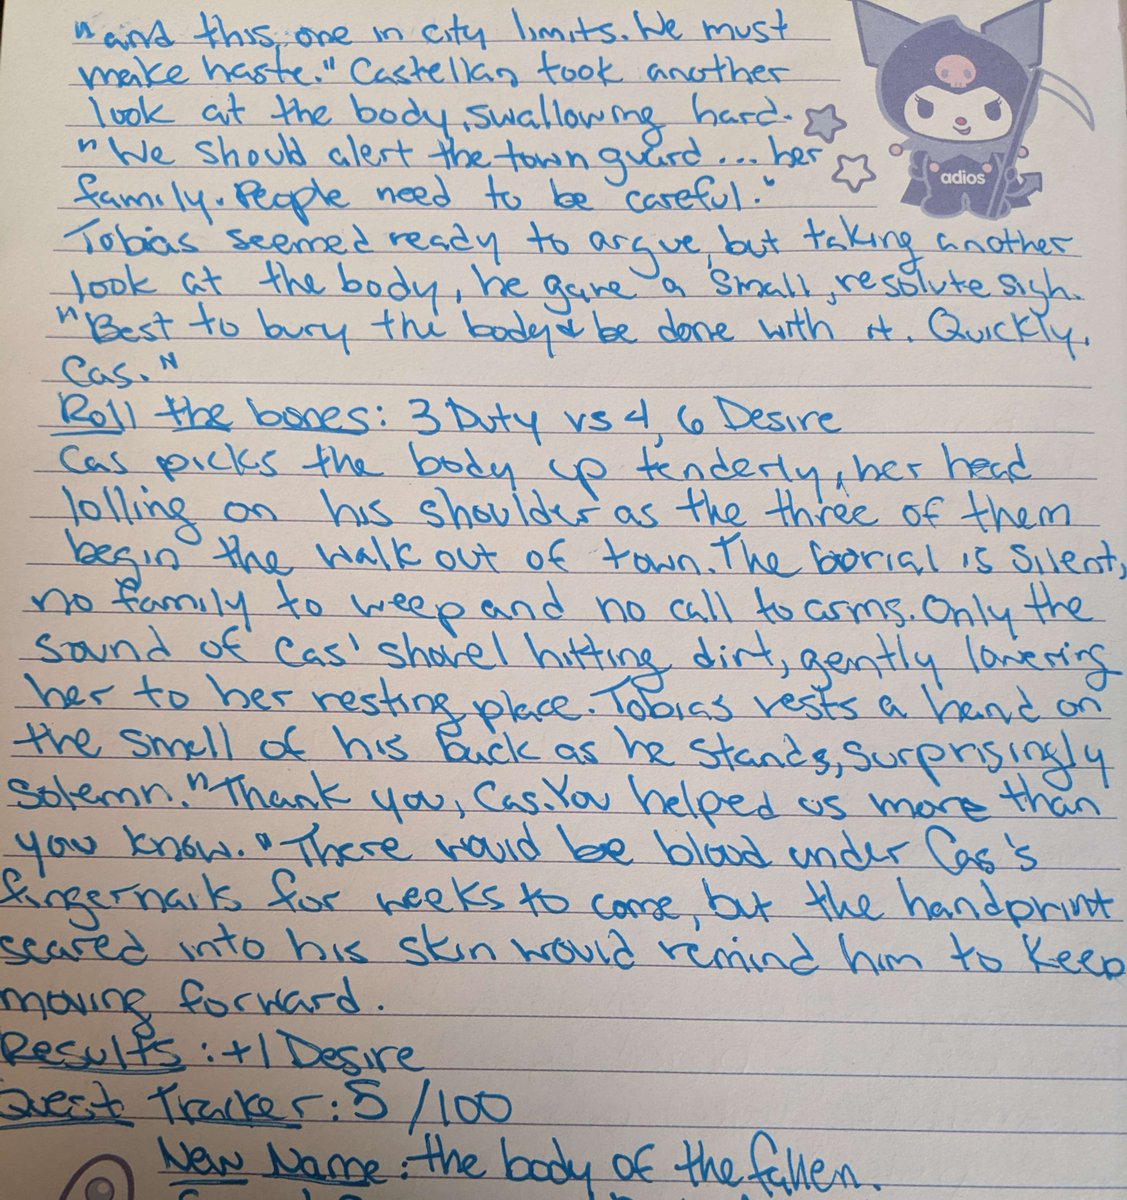 "and this, one in city limits. We must
make haste." Castellan took another
look at the body, swallowing hard.
"We should alert the town guard... her
family. People need to be careful."
adios
Tobias seemed ready to argue, but taking another
look at the body, he gave a small, resolute sigh.
"Best to bury the body & be done with it. Quickly,
Cas."
Roll the bones: 3 Duty vs 4, 6 Desire
Cas picks the body up tenderly, her head
lolling on his shoulder as the three of them
begin the walk out of town. The borial is silent,
no family to weep and no call to arms. Only the
sound of Cas' shovel hitting dirt, gently lowering
her to her resting place. Tobias rests a hand on
the small of his back as he stands, surprisingly
solemn. "Thank you, Cas. You helped us more than
you know." There would be blood under Cas's
fingernails for weeks to come, but the handprint
seared into his skin would remind him to keep
moving forward.
Results: +1 Desire
Quest Tracker: 5/100
New Name: the body of the fallen.